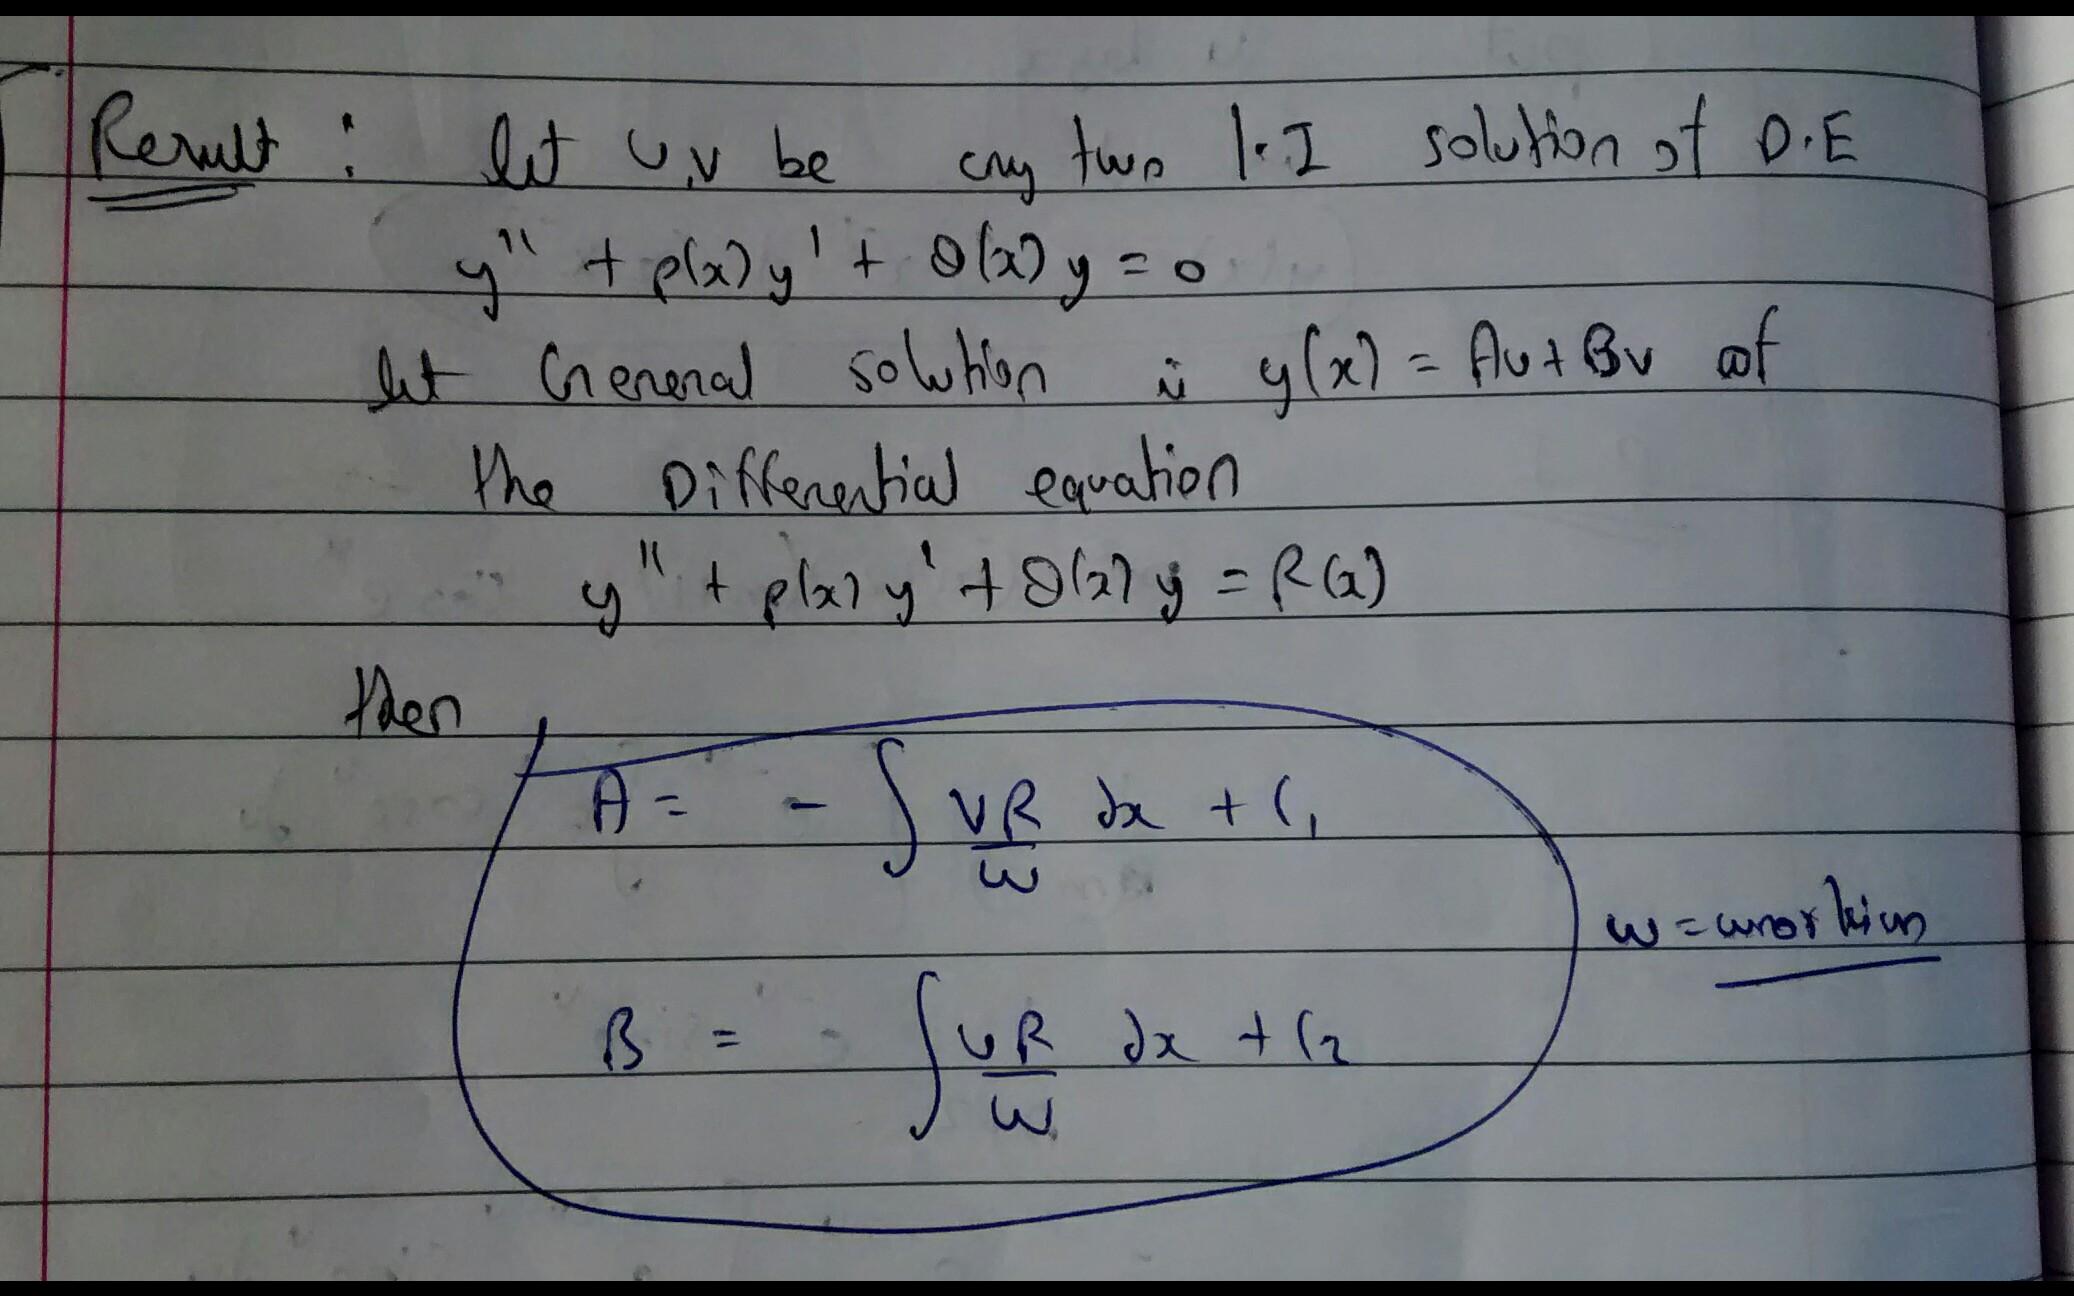 Result : let u,v be any two l.I solution of D.E
y'' + p(x) y' + Q(x) y = 0
let General solution is y(x) = Au + Bv of
the Differential equation
y'' + p(x) y' + Q(x) y = R(x)
then
A = - ∫ vR/w dx + C₁
w = wronkian
B = ∫ uR/w dx + C₂